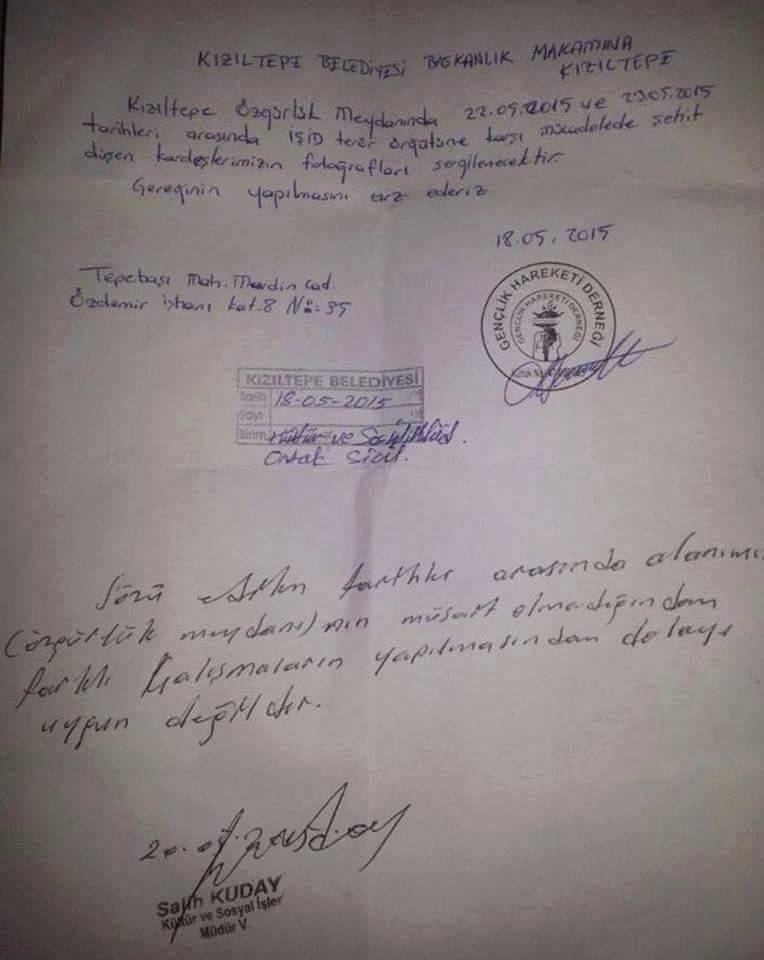 KIZILTEPE BELEDİYESİ BAŞKANLIK MAKAMINA
KIZILTEPE
Kızıltepe Özgürlük Meydanında 22.05.2015 ve 23.05.2015
tarihleri arasında IŞİD terör örgütüne karşı mücadelede şehit
düşen kardeşlerimizin fotoğrafları sergilenecektir.
Gereğinin yapılmasını arz ederiz.
18.05.2015
Tepebaşı Mah. Mardin Cad.
Özdemir İşhanı kat:8 No:35
GENÇLİK HAREKETİ DERNEĞİ
GENÇLİK HAREKETİ DERNEĞİ
KIZILTEPE BELEDİYESİ
Tarih 18-05-2015
Sayı
Birim Kültür ve Sosyal
Ortak
Sözü edilen tarihler arasında alanımız
(özgürlük meydanı)nın müsait olmadığından
farklı çalışmaların yapılmasından dolayı
uygun değildir.
20.05.
Salih KUDAY
Kültür ve Sosyal İşler
Müdür V.